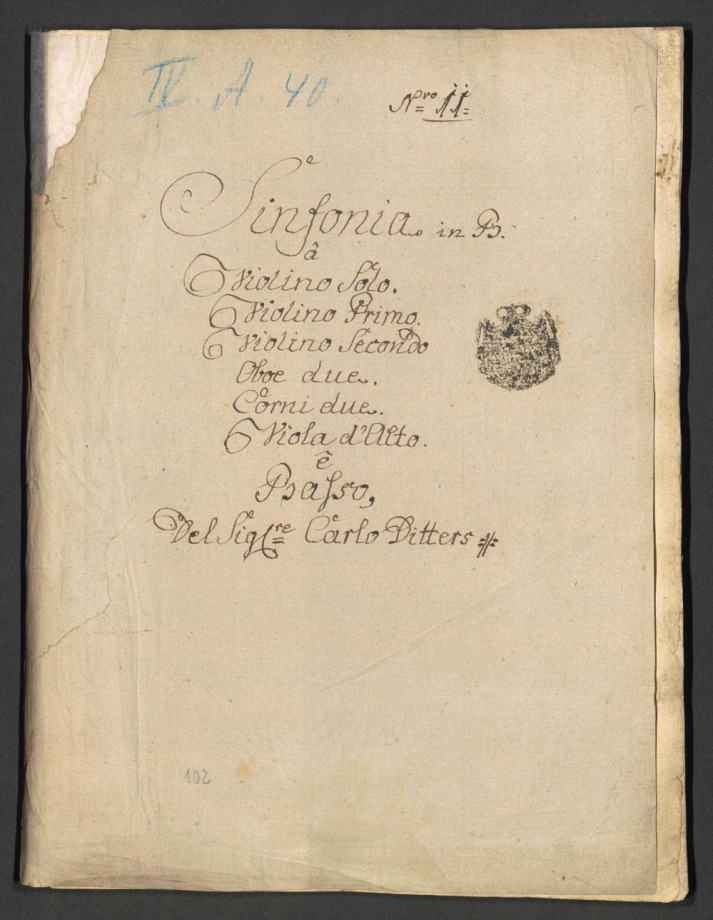 IV. A. 40.
Nro 11
Sinfonia in B.
â
Violino Solo.
Violino Primo.
Violino Secondo
Oboe due.
Corni due.
Viola d'Alto.
ê
Basso,
Del Sigre Carlo Ditters
102